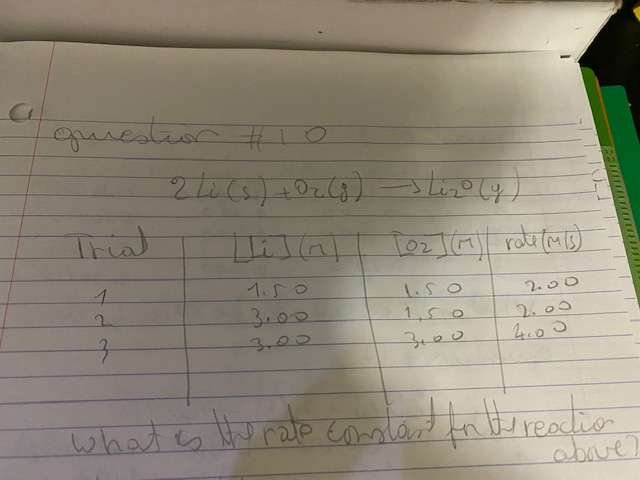 question #10
2Li(s) + O2(g) → Li2O(g)
Trial [Li](M) [O2](M) rate(M/s)
1 1.50 1.50 2.00
2 3.00 1,50 2.00
3 3.00 3,00 4.00
What is the rate constant for the reaction
above?